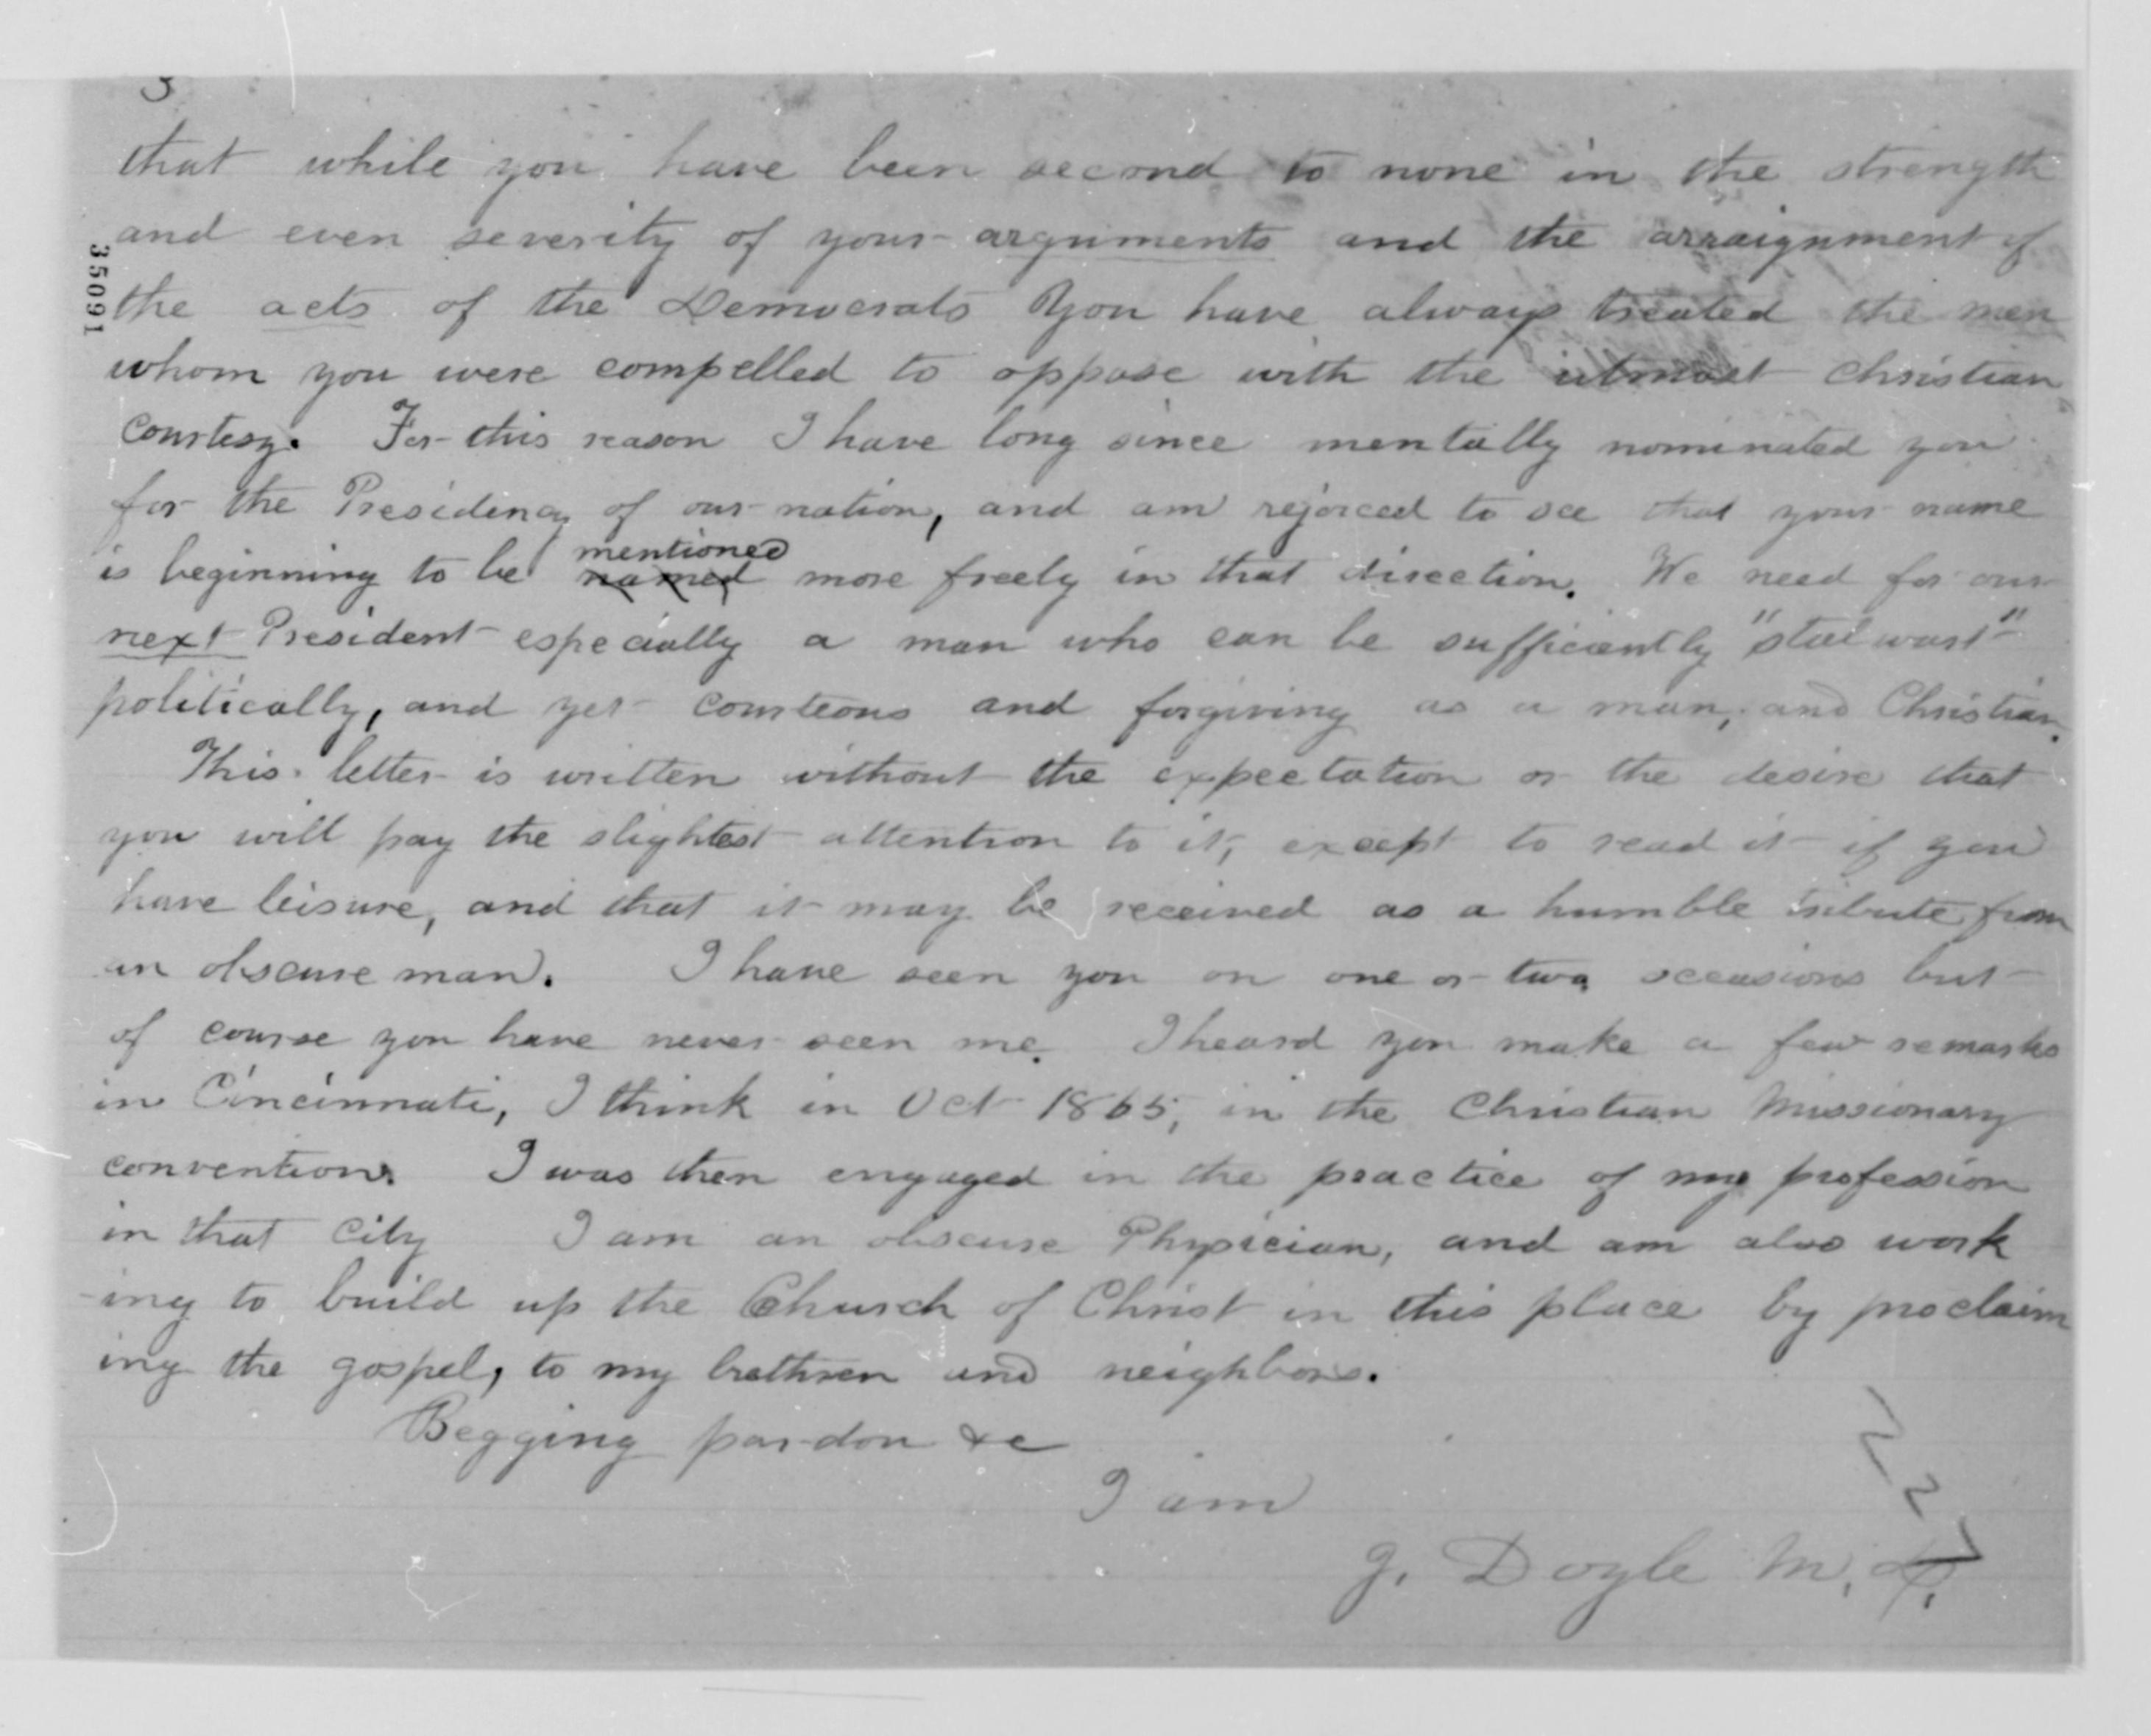 3
that while you have been second to none in the strength
and even severity of your arguments and the arraignment of
350991
the acts of the Democrats you have always treated the men
whom you were compelled to oppose with the utmost Christian
courtesy. For this reason I have long since mentally nominated you
for the Presidency of our nation, and am rejoiced to see that your name
is beginning to be named mentioned more freely in that direction. We need for our
next President especially a man who can be sufficiently "stalwart"
politically, and yet courteous and forgiving as a man, and Christian.
This letter is written without the expectation or the desire that
you will pay the slightest attention to it, except to read it if you
have leisure, and that it may be received as a humble tribute from
an obscure man. I have seen you on one or two occasions but
of course you have never seen me. I heard you make a few remarks
in Cincinnati, I think in Oct 1865, in the Christian Missionary
convention. I was then engaged in the practice of my profession
in that city I am an obscure Physician, and am also work
ing to build up the Church of Christ in this place by proclaim
ing the gospel, to my brethren and neighbors.
Begging pardon &c
I am
J. Doyle M.D.